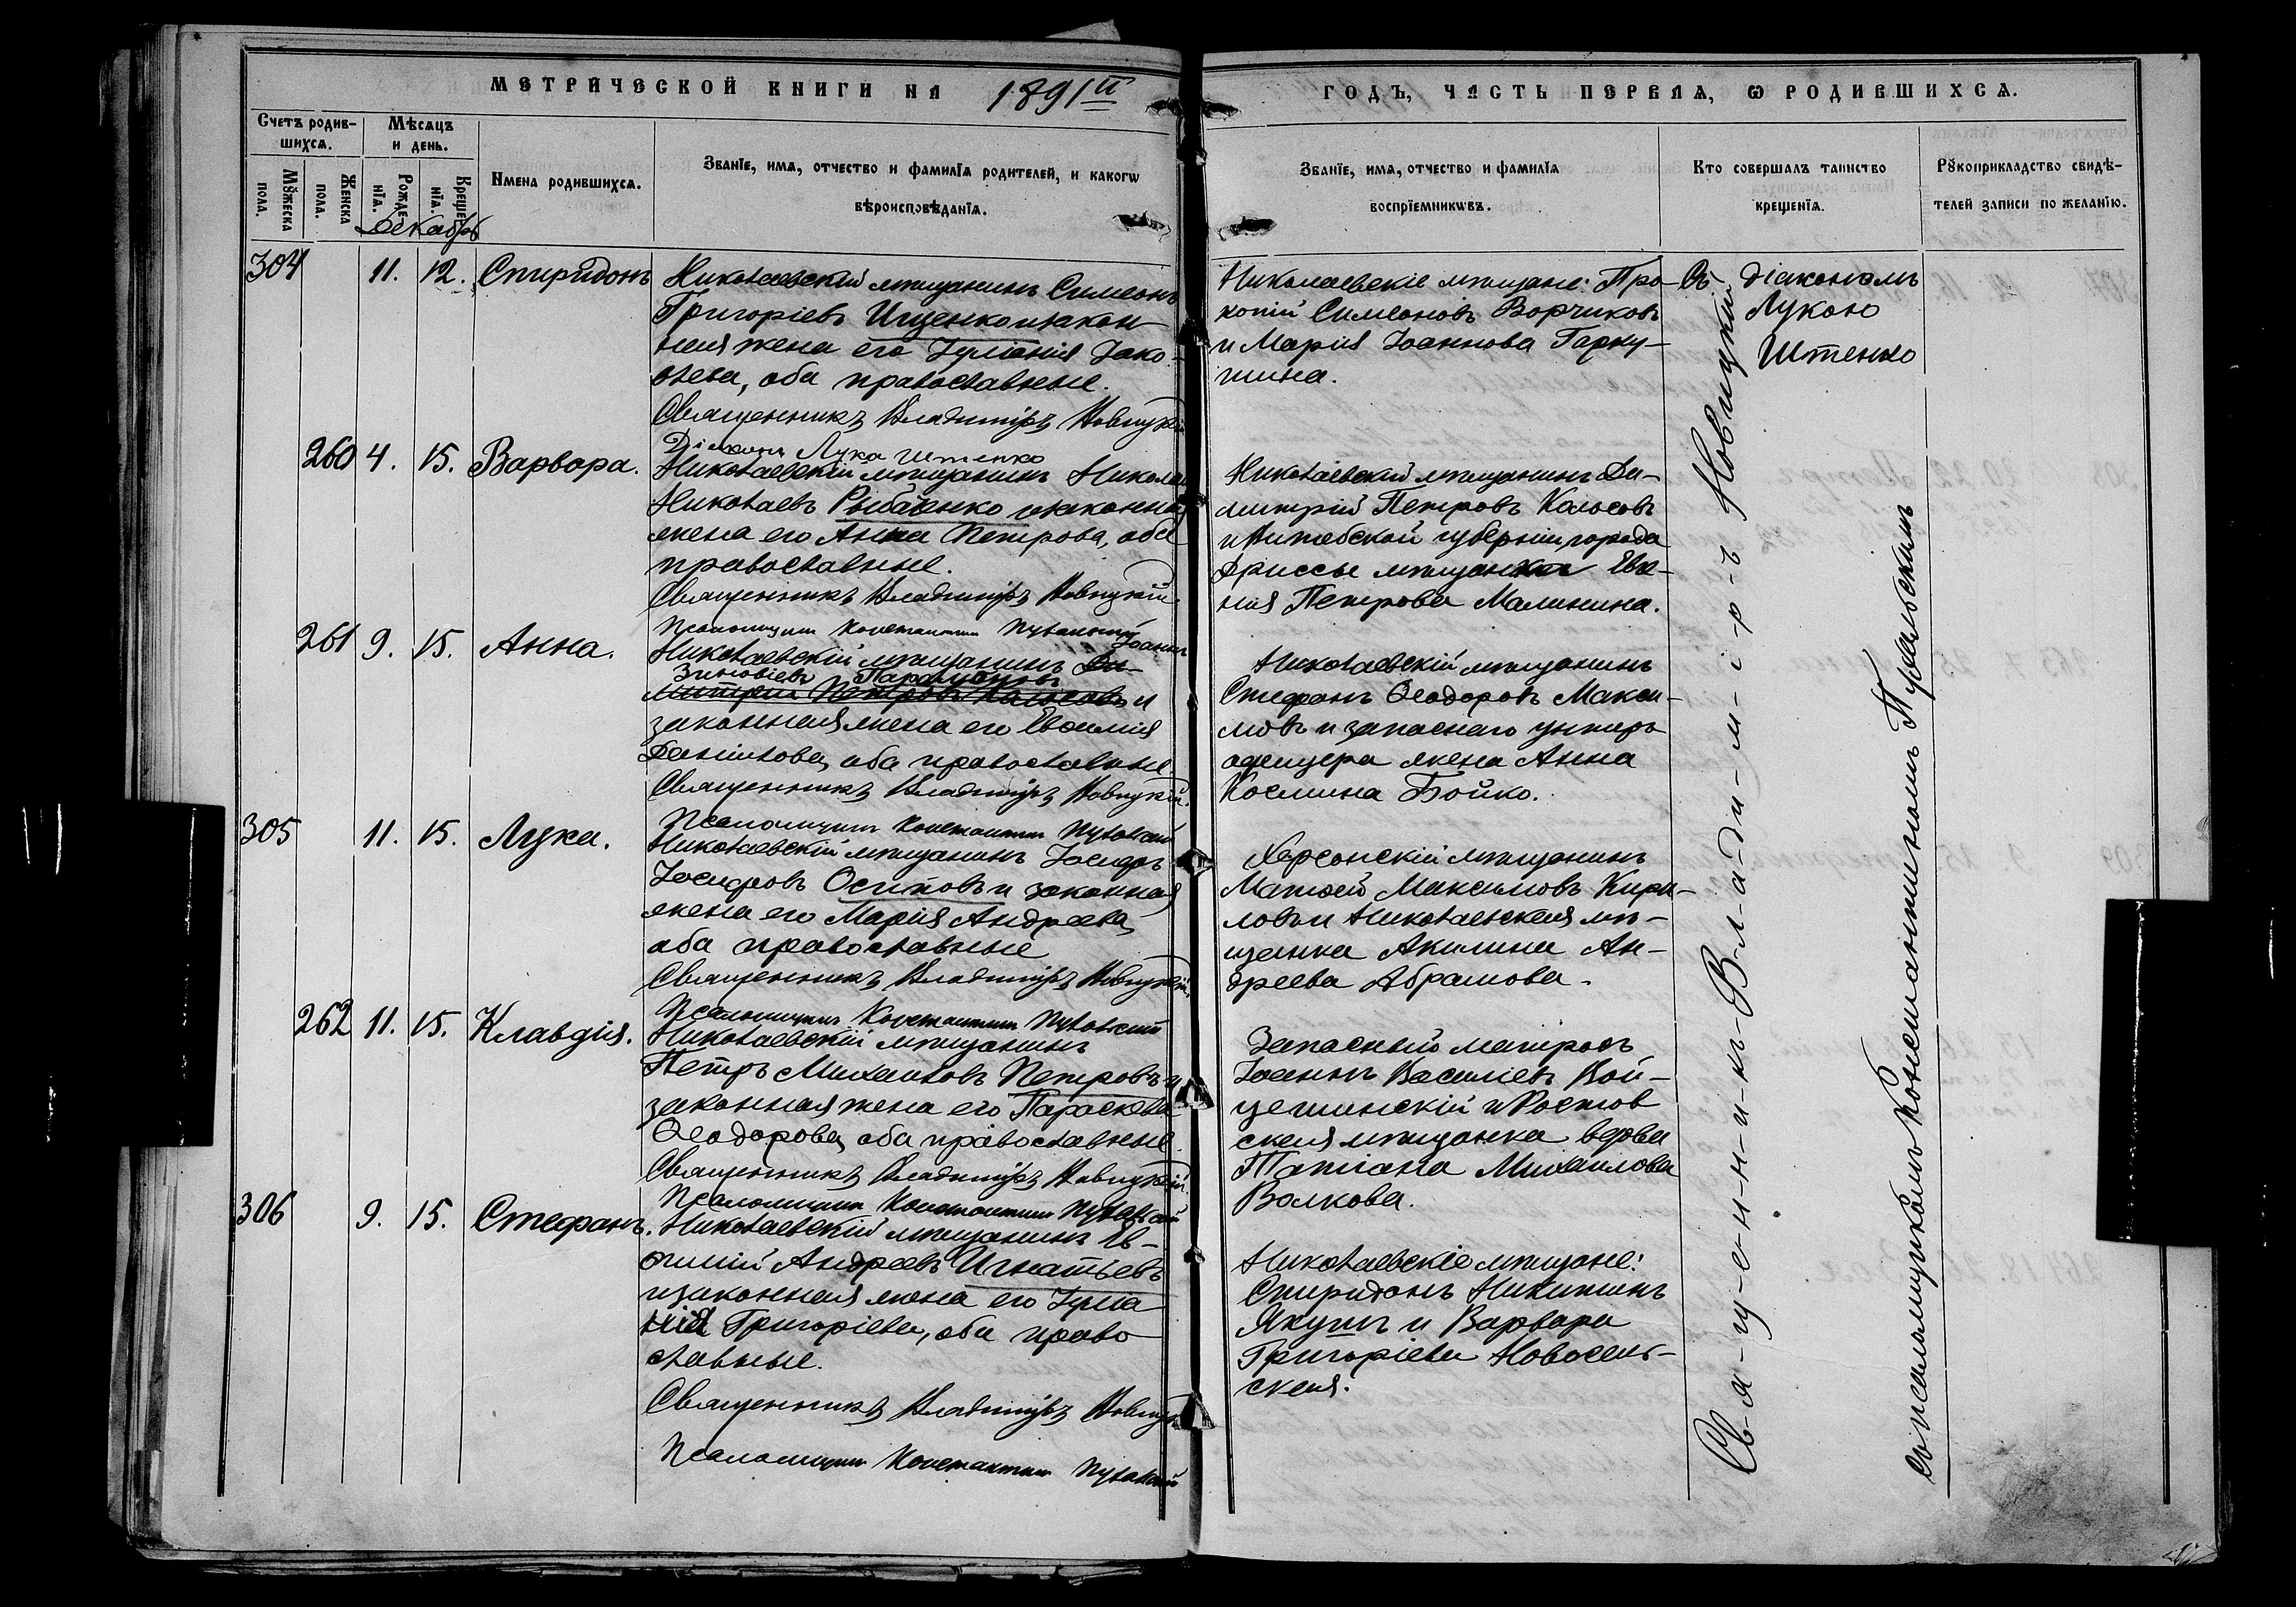 МЕТРИЧЕСКОЙ КНИГИ НА 1891й
ГОДЪ, ЧАСТЬ ПЕРВАЯ, Ѡ РОДИВШИХСѦ.
Счетъ родив-
шихсѧ.
Мѣсѧцъ
и день.
Мꙋжеска
пола.
Женска
пола.
Рожде-
нїѧ.
Креще-
нїѧ.
Имена родившихсѧ.
Званїе, имѧ, отчество и фамилїѧ родителей, и какогѡ
вѣроисповѣданїѧ.
Званїе, имѧ, отчество и фамилїѧ
воспрїемникѡвъ.
Кто совершалъ таинство
крещенїѧ.
Рꙋкоприкладство свидѣ-
телей записи по желанїю.
Декабрь
304 11. 12. Спиридонъ
Николаевскій мѣщанинъ Симеонъ
Григоріевъ Ищенко и закон-
ная жена его Іуліанія Іако-
влева, оба православные.
Священникъ Владиміръ Новицкій
Діаконъ Лука Штенко
Николаевскіе мѣщане: Про-
копій Симеоновъ Ворчиковъ
и Марія Іоаннова Гарку-
шина.
Съ діакономъ
Лукою
Штенко
260 4. 15. Варвара.
Николаевскій мѣщанинъ Николай
Николаевъ Рыбаенко и законная
жена его Анна Петрова, оба
православные.
Священникъ Владиміръ Новицкій
Псаломщикъ Константинъ
Николаевскій мѣщанинъ Ди-
митрій Петровъ Колосовъ
и Витебской губерніи города
Дриссы мѣщанка Евге-
нія Петрова Малинина.
261 9. 15. Анна.
Николаевскій мѣщанинъ Іоаннъ
Зиновіевъ Парамоновъ
Димитрій Петровъ Колосовъ и
законная жена его Евѳимія
Даніилова, оба православные
Священникъ Владиміръ Новицкій.
Псаломщикъ Константинъ
Николаевскій мѣщанинъ
Стефанъ Ѳеодоровъ Макси-
мовъ и запаснаго унтеръ
офицера жена Анна
Космина Бойко.
305 11. 15. Лука.
Николаевскій мѣщанинъ Іосифъ
Іосифовъ Осиповъ и законная
жена его Марія Андреева,
оба православные
Священникъ Владиміръ Новицкій
Псаломщикъ Константинъ
Херсонскій мѣщанинъ
Матѳей Максимовъ Кири-
ловъ и Николаевская мѣ-
щанка Акилина Ан-
дреева Абрамова.
262 11. 15. Клавдія.
Николаевскій мѣщанинъ
Петръ Михаиловъ Петровъ и
законная жена его Параскева
Ѳеодорова, оба православные
Священникъ Владиміръ Новицкій.
Псаломщикъ Константинъ
Запасный матросъ
Іоаннъ Василіевъ Вой-
цешинскій и Ростов
ская мѣщанка вдова
Татіана Михаилова
Волкова.
306 9. 15. Стефанъ.
Николаевскій мѣщанинъ Ев-
ѳимій Андреевъ Игнатьевъ
и законная жена его Іулiа
нія Григоріева, оба право
славные.
Священникъ Владиміръ Новицкій
Псаломщикъ Константинъ
Николаевскіе мѣщане:
Спиридонъ Никитинъ
Якушъ и Варвара
Григоріева Новосель-
ская.
Свя-щ-е-н-н-и-къ В-л-а-ди-м-і-р-ъ Новицкій
съ псаломщикомъ Константиномъ